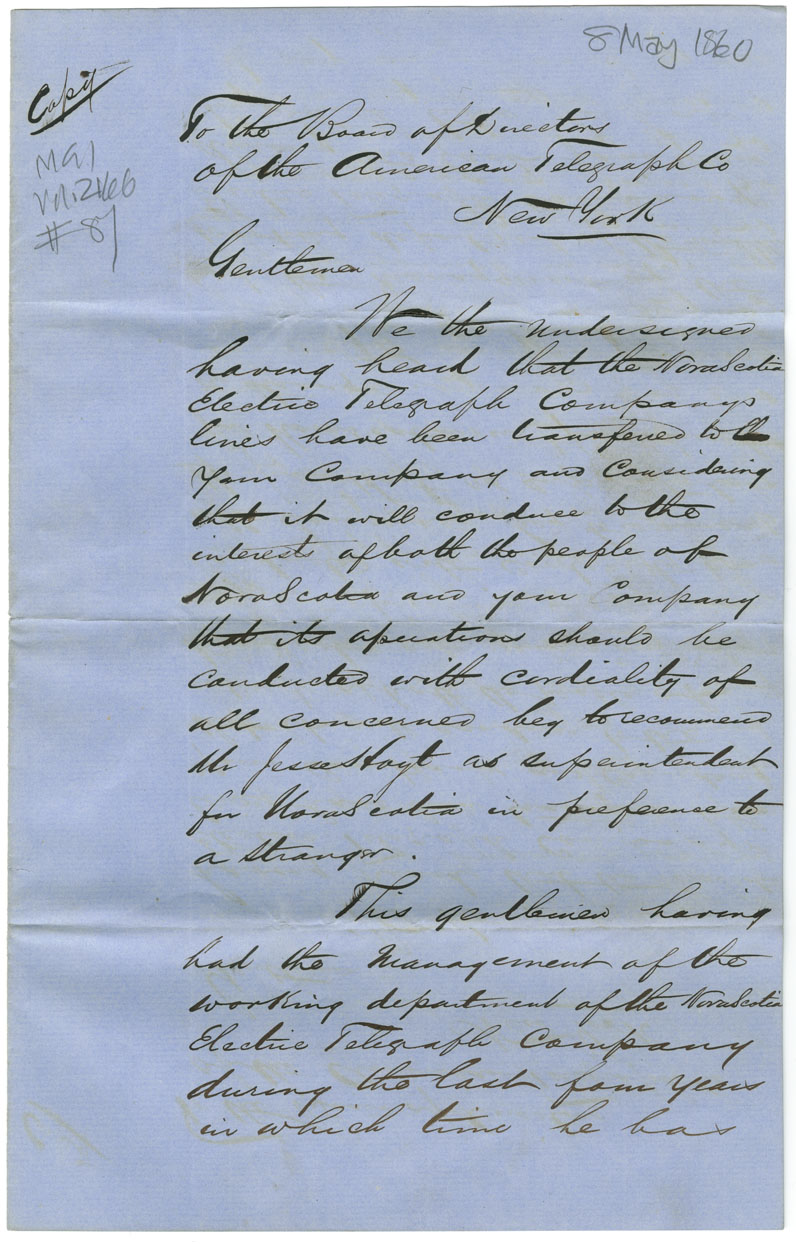 8 May 1860
Copy
MG1
Vol. 2466
#87
To the Board of Directors
of the American Telegraph Co
New York
Gentlemen
We the undersigned
having heard that the Nova Scotia
Electric Telegraph Companys
lines have been transferred to
your Company and Considering
that it will conduce to the
interests of both the people of
Nova Scotia and your Company
that its operations should be
Conducted with cordiality of
all concerned beg to recommend
Mr Jesse Hoyt as superintendent
for Nova Scotia in preference to
a stranger.
This gentlemen having
had the Management of the
working department of the Nova Scotia
Electric Telegraph Company
during the last four years
in which time he has